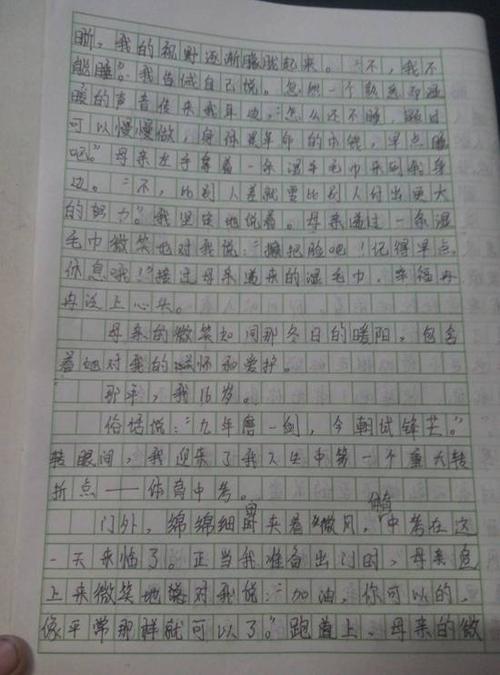 晰，我的视野逐渐朦胧起来。“不，我不
能睡”。我告诫自己说。忽然一个熟悉却温
暖的声音传来我耳边，“怎么还不睡，题目
可以慢慢做，身体是革命的本钱，早点睡
吧。”母亲左手拿着一条湿毛巾来到我身
边。“不，比别人差就要比别人付出更大
的努力”。我坚定地说着。母亲递过一条湿
毛巾微笑地对我说：“擦把脸吧！记得早点
休息哦！”接过母亲递来的湿毛巾，幸福再
再没上心头。
母亲的微笑如同那冬日的暖阳，包含
着她对我的关怀和爱护。
那年，我16岁。
俗话说：“九年磨一剑，今朝试锋芒。”
转眼间，我迎来了我人生中第一个重大转
折点——体育中考。
门外，绵绵细雨夹着微风，体育中考在这
一天来临了。正当我准备出门时，母亲
上来微笑地对我说：“加油，你可以的，
像平常那样就可以了。”跑道上，母亲的微